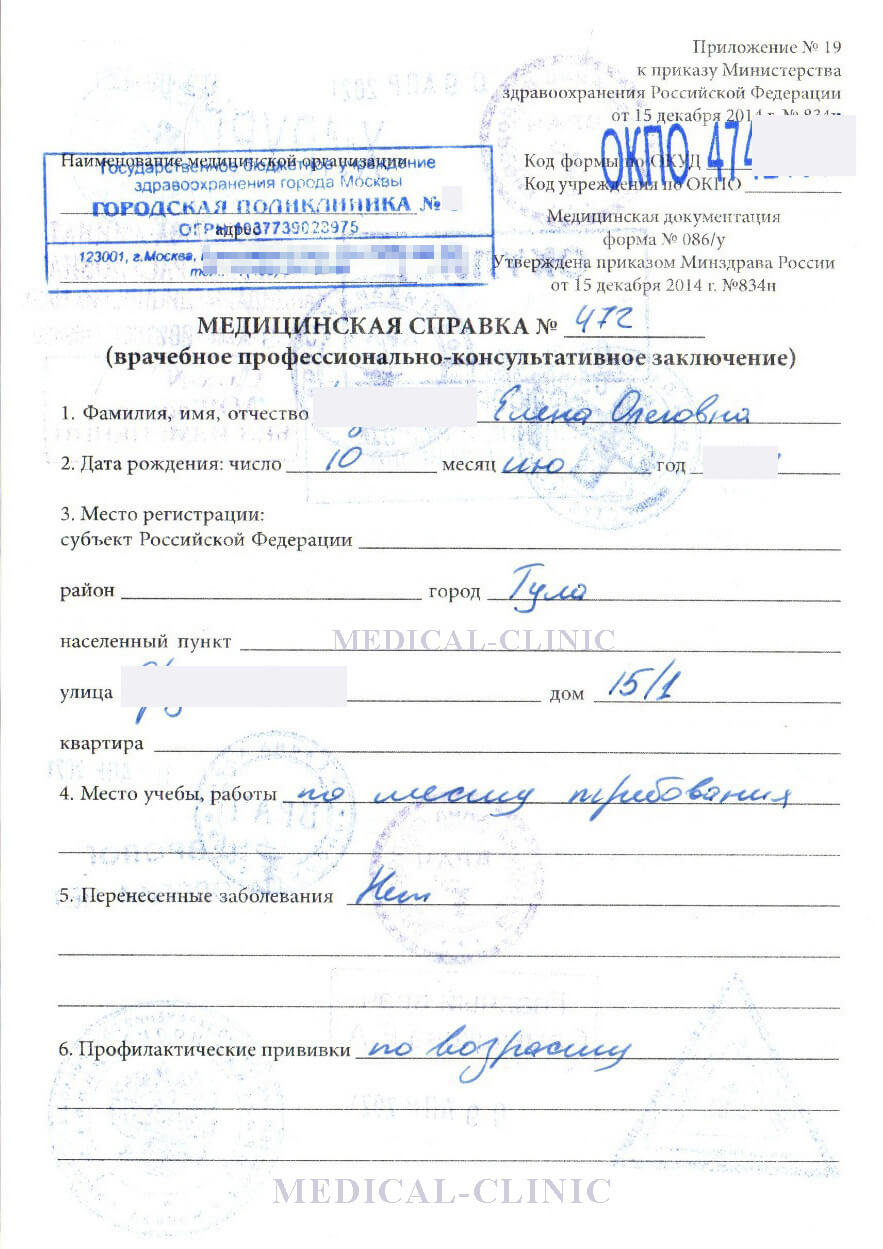 Приложение № 19
к приказу Министерства
здравоохранения Российской Федерации
от 15 декабря 2014 г. № 834н
Наименование медицинской организации
Государственное бюджетное учреждение
здравоохранения города Москвы
ГОРОДСКАЯ ПОЛИКЛИНИКА №
адрес
ОГРН 1037739023975
123001, г.Москва,
Код формы по ОКУД
ОКПО 474
Код учреждения по ОКПО
Медицинская документация
форма № 086/у
Утверждена приказом Минздрава России
от 15 декабря 2014 г. №834н
МЕДИЦИНСКАЯ СПРАВКА № 472
(врачебное профессионально-консультативное заключение)
1. Фамилия, имя, отчество Елена Олеговна
2. Дата рождения: число 10 месяц ию год
3. Место регистрации:
субъект Российской Федерации
район город Тула
населенный пункт
MEDICAL-CLINIC
улица дом 15/1
квартира
4. Место учебы, работы по месту требования
5. Перенесенные заболевания Нет
6. Профилактические прививки по возрасту
MEDICAL-CLINIC